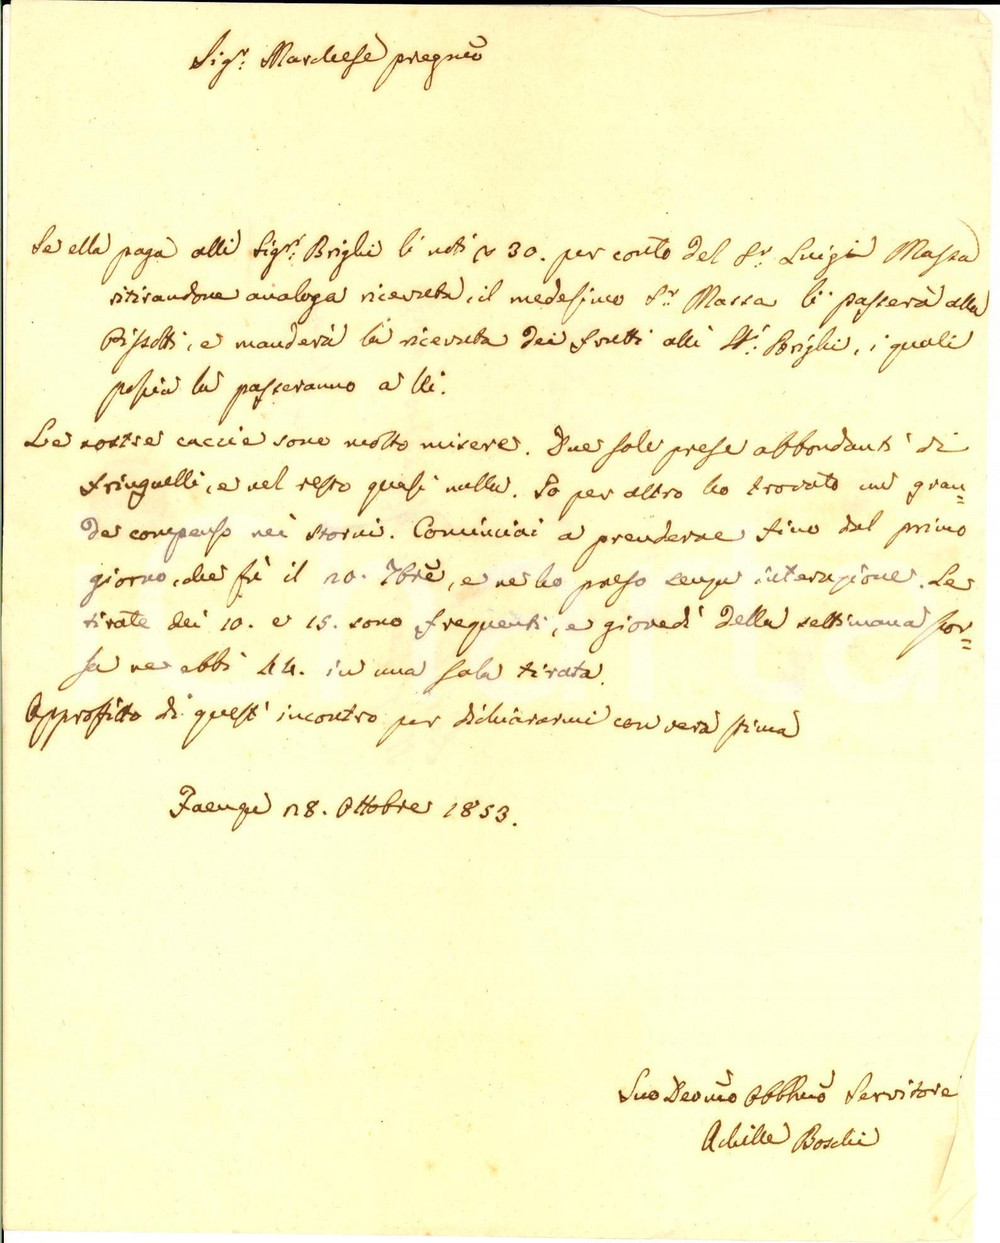 Sig.r Marchese pregmo
Se ella paga alli Sig.ri Brighi li noti 30. per conto del Sr. Luigi Massa
ritirandone analoga ricevuta, il medesimo Sr. Massa li passerà alla
e manderà la ricevuta dei frutti alli Sri. Brighi, i quali
poscia la passeranno a lei.
Le nostre caccie sono molto misere. Due sole prese abbondanti di
fringuelli, e nel resto quasi nulla. Io per altro ho trovato un gran=
de compenso nei storni. Cominciai a prenderne fino dal primo
giorno, che fu il 20. 7bre, e ne ho preso senza interuzione. Le
tirate dei 10. e 15. sono frequenti, e giovedì della settimana scor=
sa ne ebbi 44. in una sola tirata.
Approffitto di quest'incontro per dichiararmi con vera stima
Faenza 28. Ottobre 1853.
Suo Devmo Obblmo Servitore
Achille Boschi